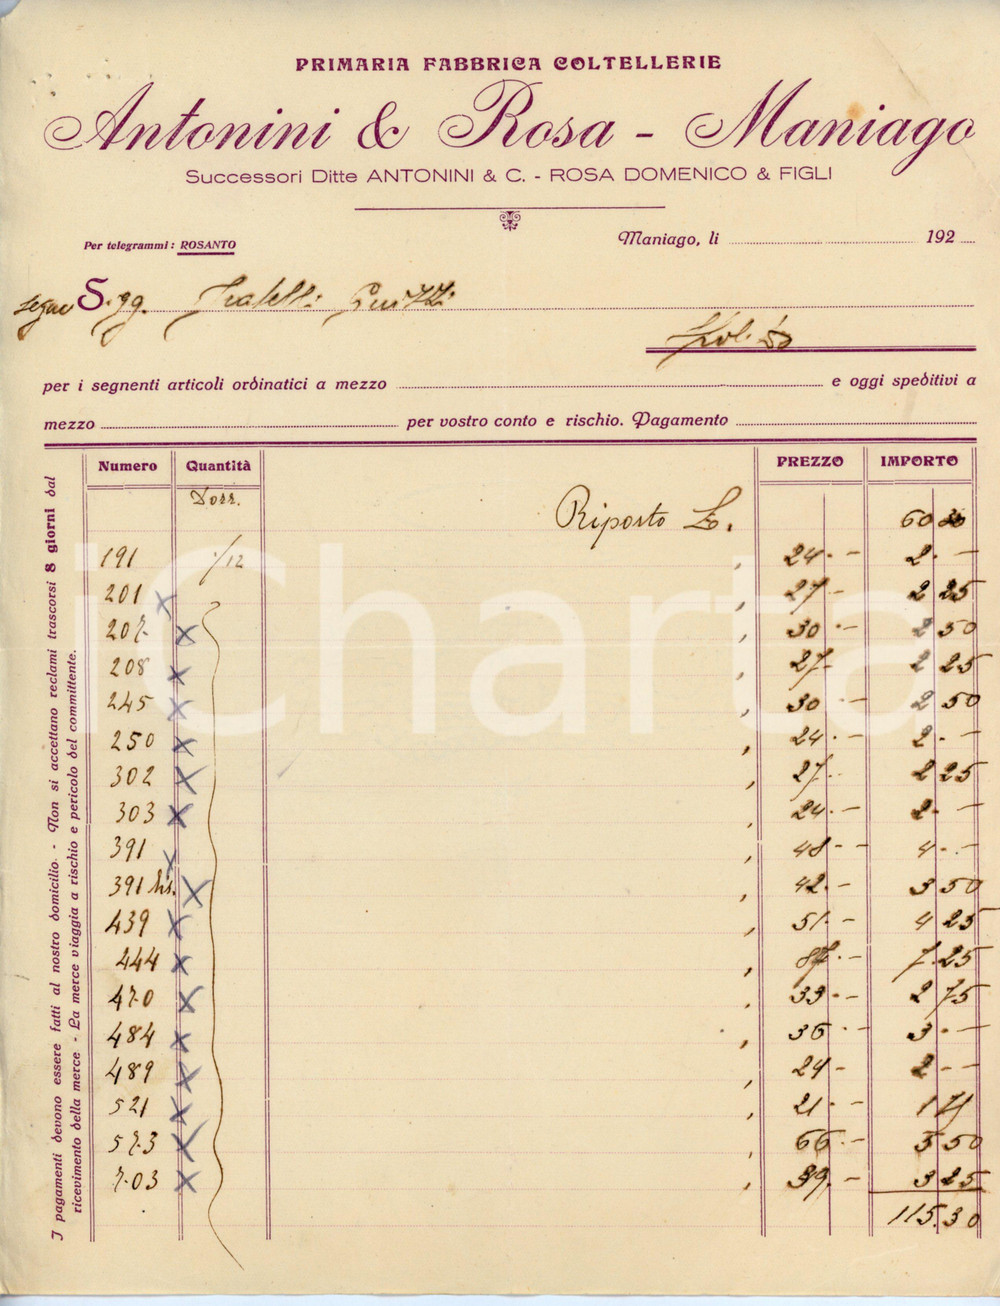 PRIMARIA FABBRICA COLTELLERIE
Antonini & Rosa - Maniago
Successori Ditte ANTONINI & C. - ROSA DOMENICO & FIGLI
Per telegrammi: ROSANTO
Maniago, li 192
segue S.gg. Fratelli
per i segnenti articoli ordinatici a mezzo e oggi speditivi a
mezzo per vostro conto e rischio. Pagamento
Numero Quantità PREZZO IMPORTO
Dozz.
Riposto L. 60
191 1/12 24.- 2.-
201 x 27- 2 25
207 x 30.- 2 50
208 x 27- 2 25
245 x 30.- 2 50
250 x 24.- 2.-
302 x 27.- 2 25
303 x 24.- 2.-
391 x 48.- 4.-
391 bis. x 42.- 3 50
439 x 51.- 4 25
444 x 87.- 7.25
470 x 33.- 2 75
484 x 36.- 3.-
489 x 24- 2.-
521 x 21.- 1 75
573 x 66.- 5 50
703 x 39.- 3 25
115.30
I pagamenti devono essere fatti al nostro domicilio. - Non si accettano reclami trascorsi 8 giorni dal
ricevimento della merce - La merce viaggia a rischio e pericolo del committente.
iCharta